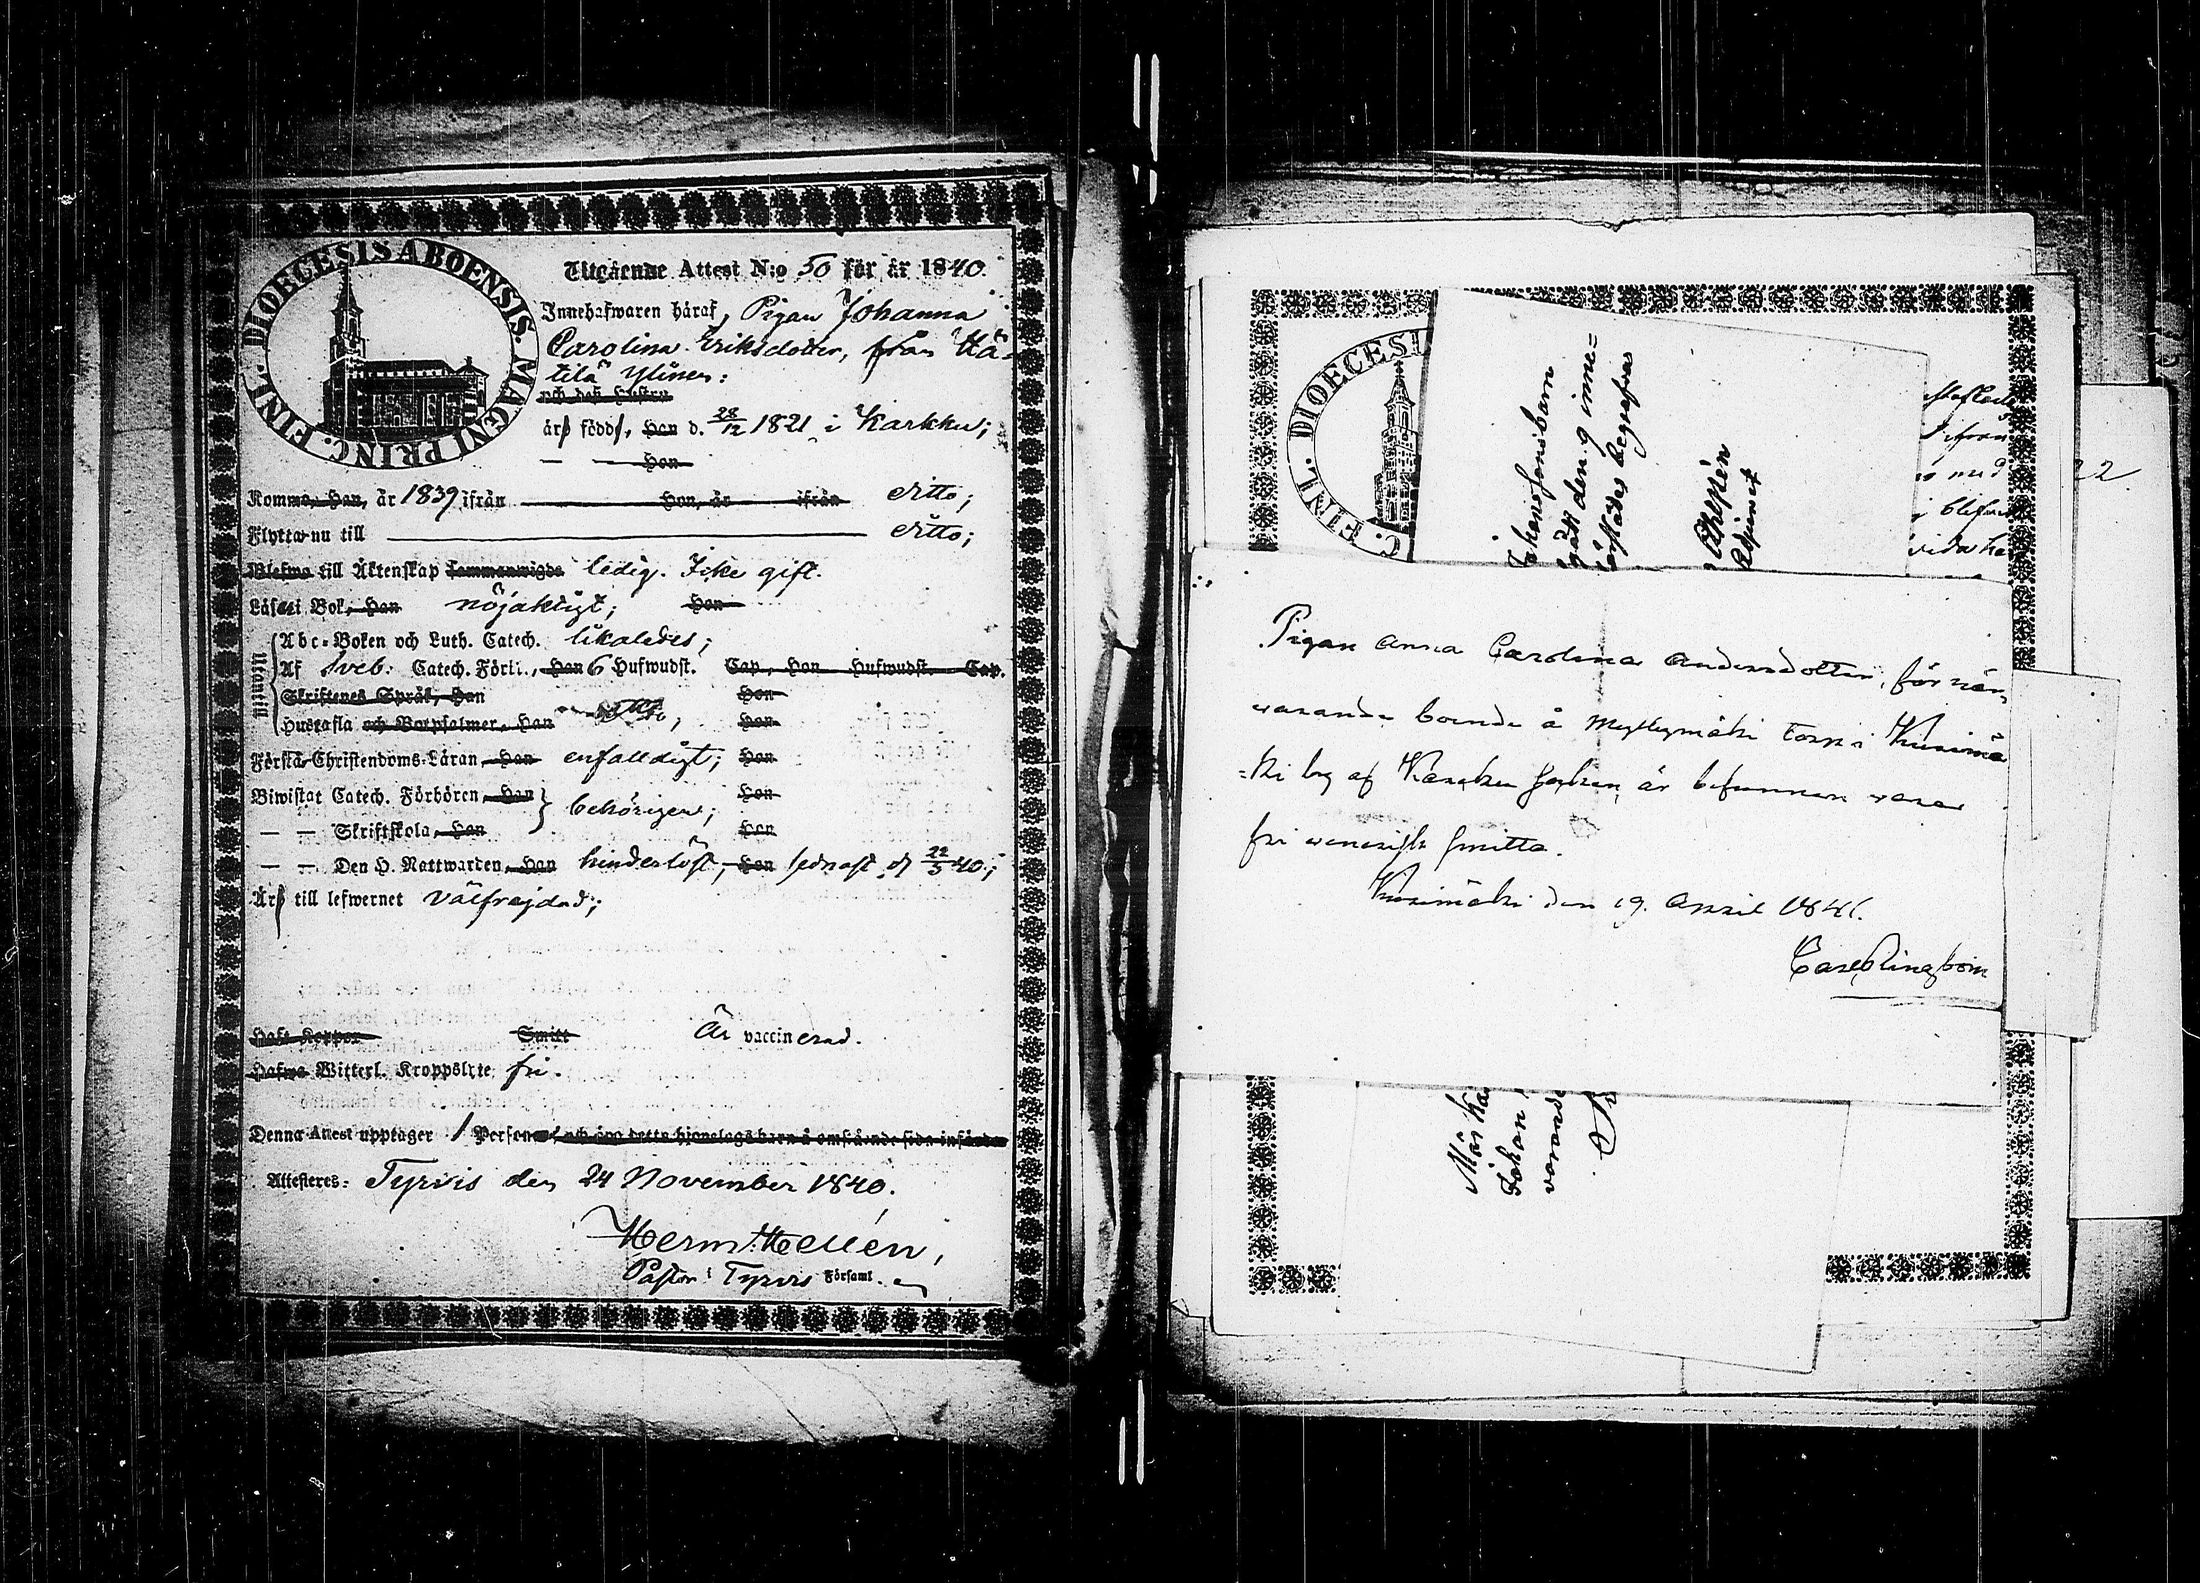 FINL. DIOECESIS ABOENSIS. MAGNI PRINC.
Utgående Attest N:o 50 för år 1840.
Innehafwaren häraf, Pigan Johanna
Carolina Eriksdotter, från Hä-
tilä Ylinen:
och dess Hustru
är född, Han d. 28/12 1821 i Karkku;
— — Hon
Komma, Han, år 1839 ifrån Hon, år ifrån ditto;
Flyttar nu till ditto;
Blefwo till Äktenskap Sammanwigde ledig. Icke gift.
Läser i Bok, Han nöjaktigt; Hon
Utantill
Abc-Boken och Luth. Catech. likaledes;
Af Sveb. Catech. Förkl., Han 6 Hufwudst. Cap., Hon Hufwudst. Cap.
Skriftenes Språk, Han Hon
Hustafla och Botpsalmer, Han Hon
Förstår Christendoms-Läran, Han enfalldigt; Hon
Biwistat Catech. Förhören, Han behörigen; Hon
— — Skriftskola, Han Hon
— — Den H. Nattwarden, Han hinderlöst, Hon sednast d 22/3 40.;
Är till lefwernet välfrejdad;
Haft Koppor Smitt Är vaccinerad.
Hafwa Witterl. Kroppslyte fri.
Denna Attest upptager 1 Person och äro detta hjonelags barn å omstående sida införde
Attesteres: Tyrvis den 24 November 1840.
Herm. Hellén,
Pastor i Tyrvis Församl.
FINL. DIOECESI
C.
Johansfonsbarn
gått den 9 inne=
begrafvas
Adjunct
ifrån
med
22
Pigan Anna Carolina Andersdotter, för när-
varande boende å Myllymäki Torp i Kuusimä
=ki by af Karcku Socken, är befunnen vara
fri venerisk smitta.
Kusimäki den 19. April 1841.
Johan